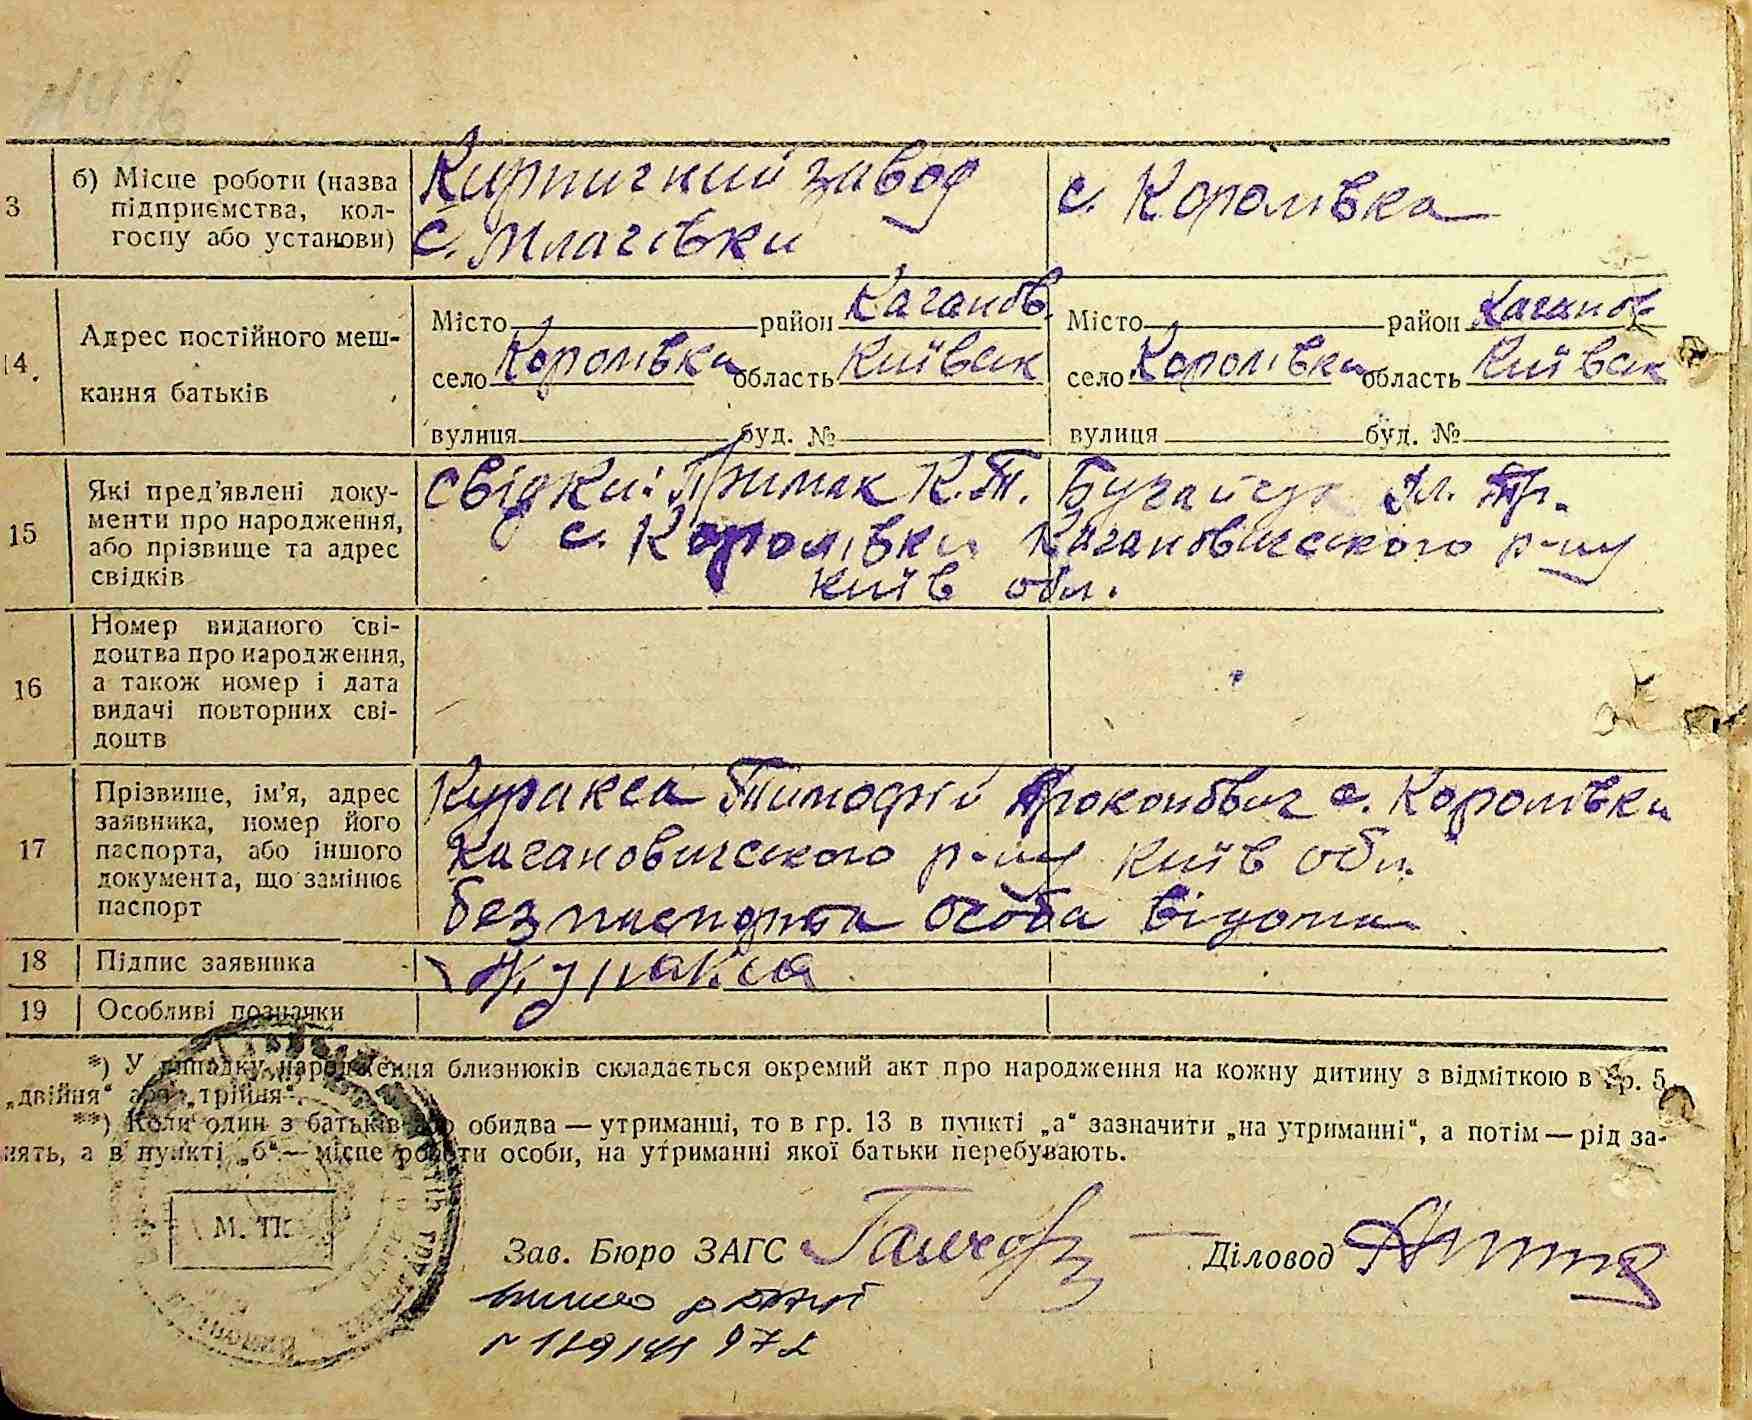 3
б) Місце роботи (назва
підприємства, кол-
госпу або установи)
Кирпичний завод
с.
с. Королівка
14.
Адрес постійного меш-
кання батьків
Місто район Каганов.
село Королівка область Київськ
вулиця буд. №
Місто район Каганов
село Королівка область Київськ
вулиця буд. №
15
Які пред'явлені доку-
менти про народження,
або прізвище та адрес
свідків
Свідки: Примак К.Т.
с. Королівки Кагановичського р-ну
Київ обл.
16
Номер виданого сві-
доцтва про народження,
а також номер і дата
видачі повторних сві-
доцтв
17
Прізвище, ім'я, адрес
заявника, номер його
паспорта, або іншого
документа, що замінює
паспорт
Куракса Тимофій с. Королівки
Кагановичського р-ну Київ обл.
без паспорта особа відома
18 Підпис заявника
Куракса
19 Особливі позначки
*) У випадку народження близнюків складається окремий акт про народження на кожну дитину з відміткою в гр. 5
„двійня“ або „трійня“.
**) Коли один з батьків або обидва — утриманці, то в гр. 13 в пункті „а“ зазначити „на утриманні“, а потім — рід за-
нять, а в пункті „б“ — місце роботи особи, на утриманні якої батьки перебувають.
М. П.
Зав. Бюро ЗАГС
Діловод